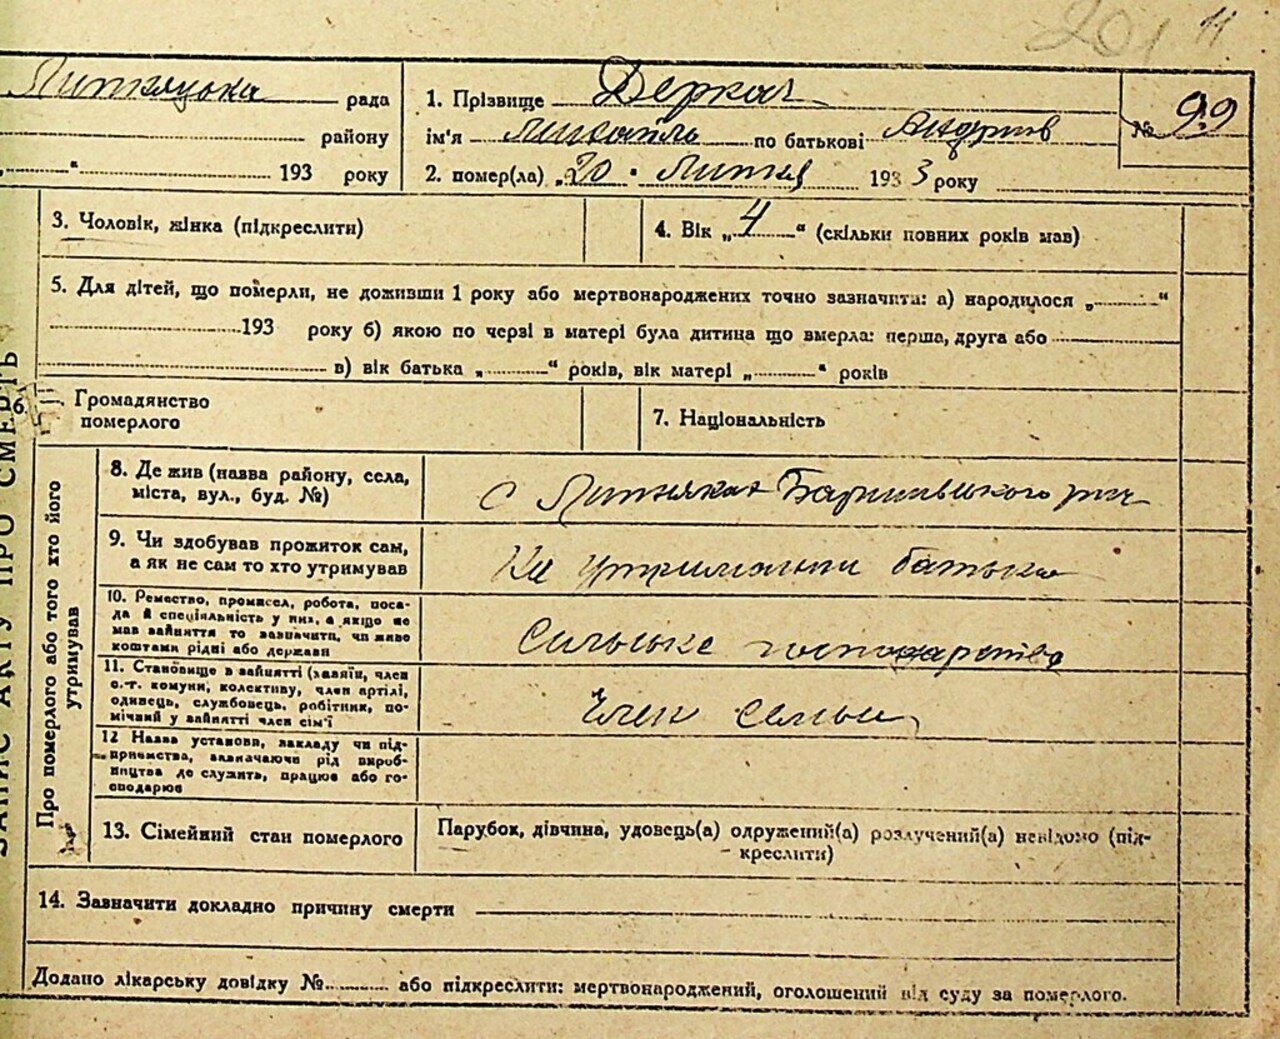 201 11
рада
району
" 193 року
1. Прізвище Деркач
ім'я Михайло по батькові Андріїв
№ 99
2. помер(ла) „20 " Липня 1933 року
3. Чоловік, жінка (підкреслити)
4. Вік „4" (скільки повних років мав)
5. Для дітей, що померли, не доживши 1 року або мертвонароджених точно зазначити: а) народилося „ "
193 року б) якою по черзі в матері була дитина що вмерла: перша, друга або
в) вік батька „ " років, вік матері „ " років
6. Громадянство
померлого
7. Національність
ЗАПИС АКТУ ПРО СМЕРТЬ
Про померлого або того хто його
утримував
8. Де жив (назва району, села,
міста, вул., буд. №)
с
9. Чи здобував прожиток сам,
а як не сам то хто утримував
На утриманні батька
10. Ремество, промисел, робота, поса-
да й спеціяльність у них, а якщо не
мав зайняття то зазначити, чи живе
коштами рідні або держави
Сильське господарство
11. Становище в зайнятті (хазяїн, член
с.-г. комуни, колективу, член артілі,
одинець, службовець, робітник, по-
мічний у зайнятті член сім'ї
Член семьи
12 Назва установи, закладу чи під-
приємства, зазначаючи рід вироб-
ництва де служить, працює або го-
сподарює
13. Сімейний стан померлого
Парубок, дівчина, удовець(а) одружений(а) розлучений(а) невідомо (під-
креслити)
14. Зазначити докладно причину смерти
Додано лікарську довідку № або підкреслити: мертвонароджений, оголошений від суду за померлого.